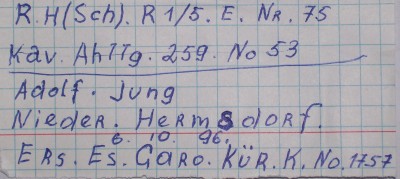 R.H(Sch). R 1/5. E. Nr. 75
Kav. AhTTg. 259. No 53
Adolf. Jung
Nieder. Hermsdorf.
6. 10. 96.
Ers. Es. Garo. KÜR. K. No. 1757